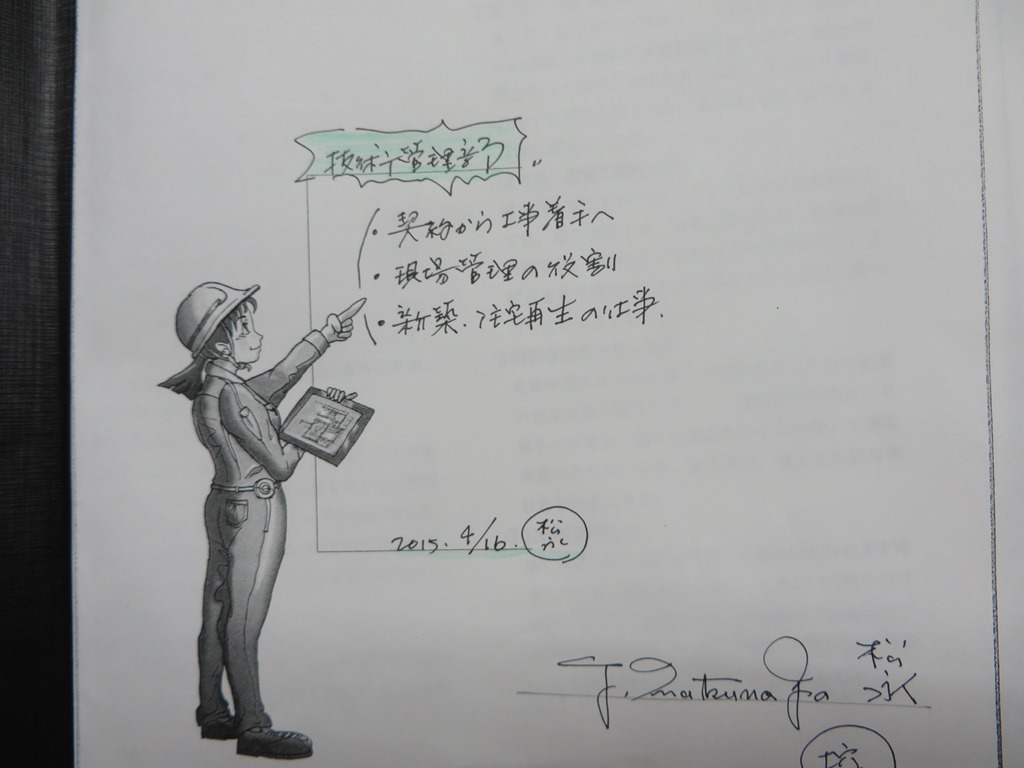 技術管理部
・契約から工事着手へ
・現場管理の役割
・新築.住宅再生の仕事.
2015. 4/16. 松永
T. Matsunaga 松永